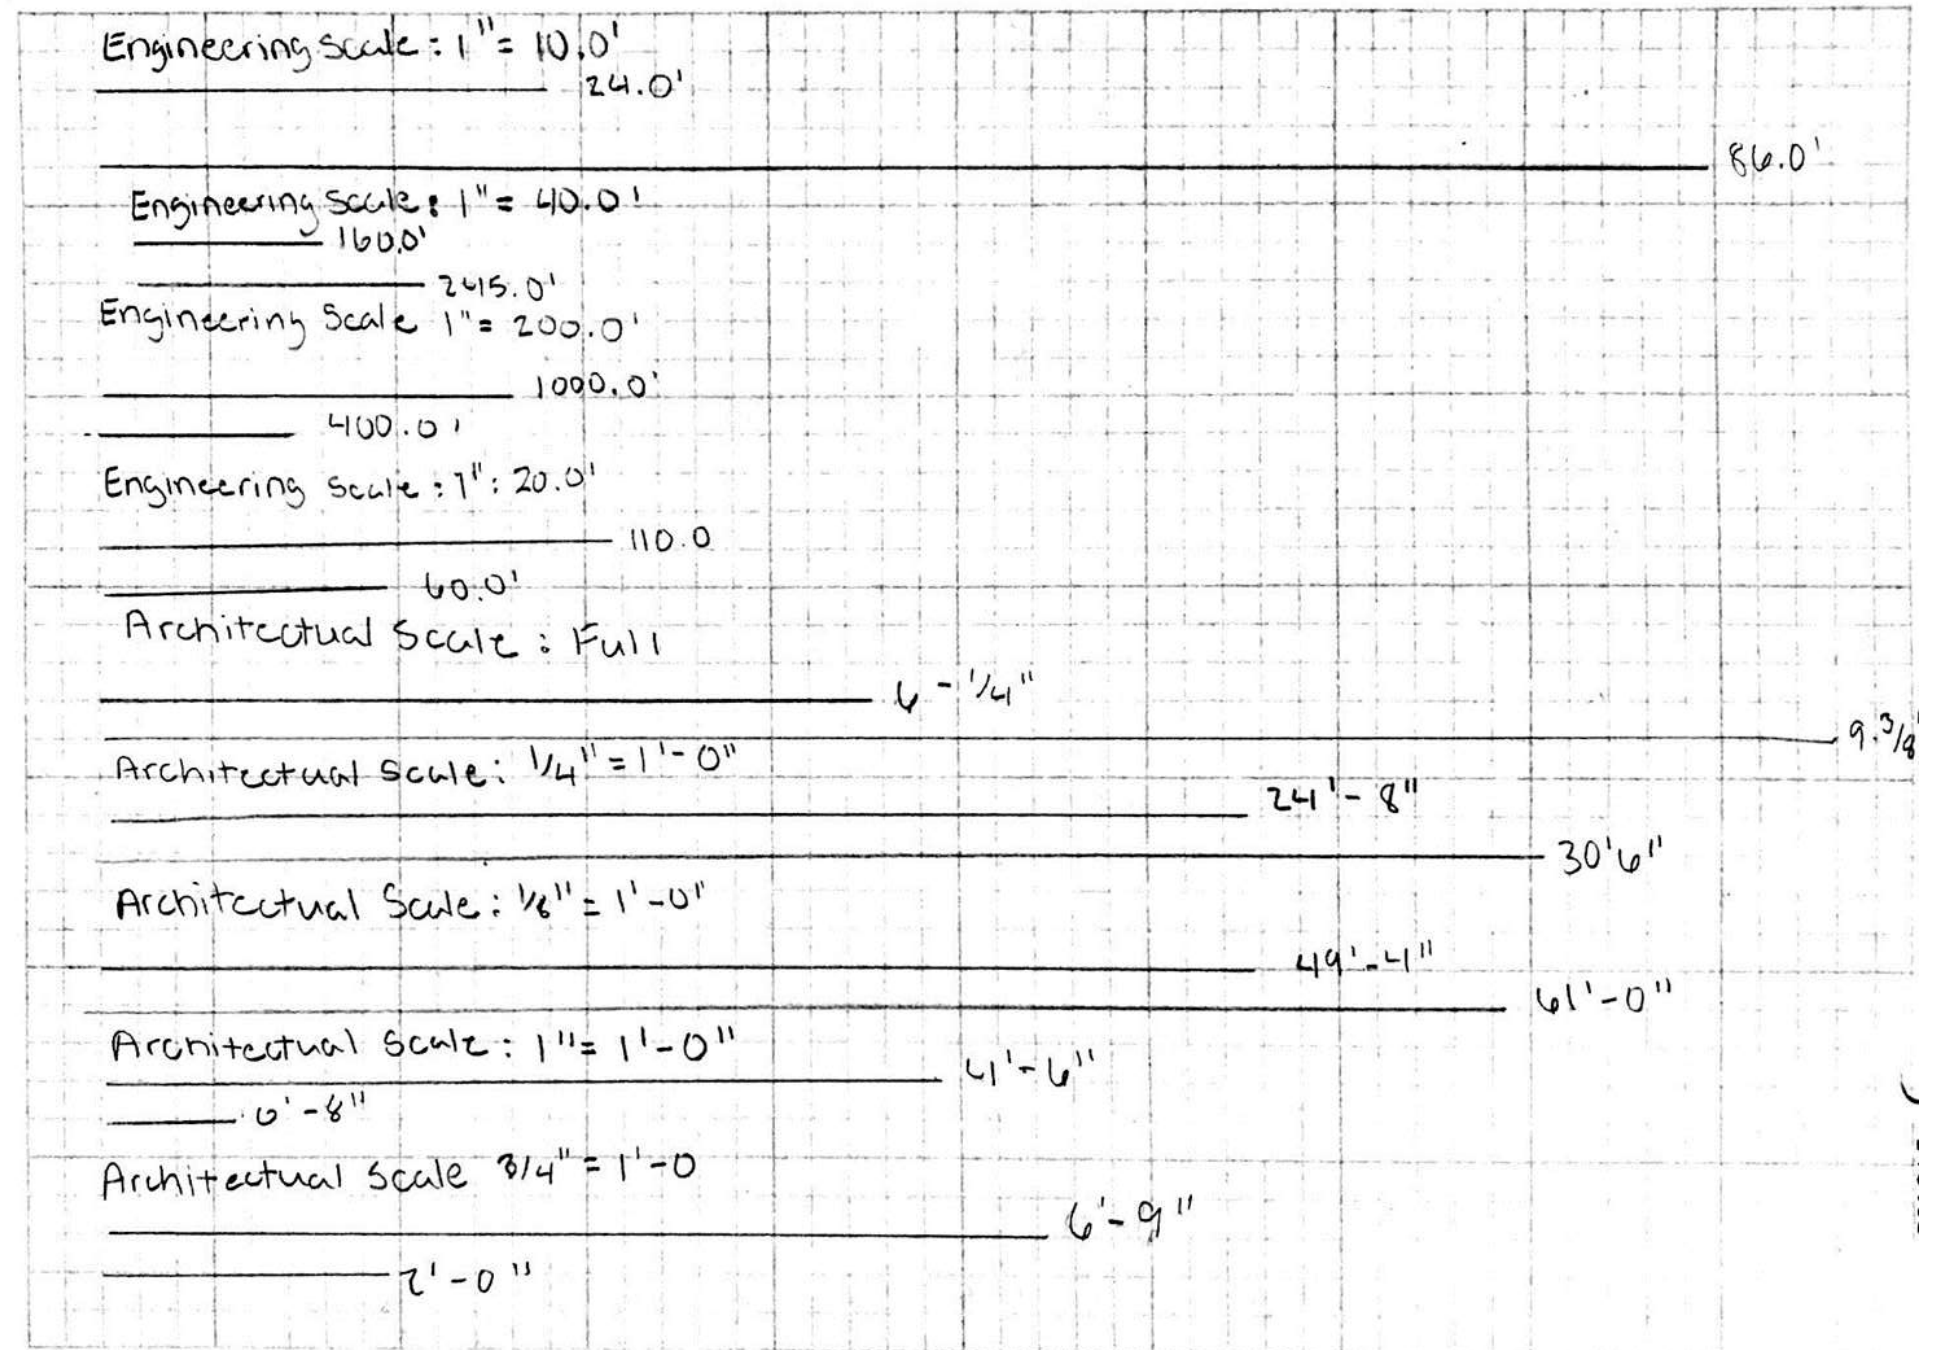 Engineering Scale : 1"= 10.0'
24.0'
86.0'
Engineering Scale : 1" = 40.0'
160.0'
245.0'
Engineering Scale 1"= 200.0'
1000.0'
400.0'
Engineering Scale : 1" : 20.0'
110.0
60.0'
Architectual Scale : Full
6 - 1/4"
9.3/8"
Architectual Scale : 1/4" = 1'-0"
24'-8"
30'6"
Architectual Scale : 1/8" = 1'-0"
49'-4"
61'-0"
Architectual Scale : 1" = 1'-0"
4'-6"
0'-8"
Architectual Scale 3/4" = 1'-0
6'-9"
2'-0"